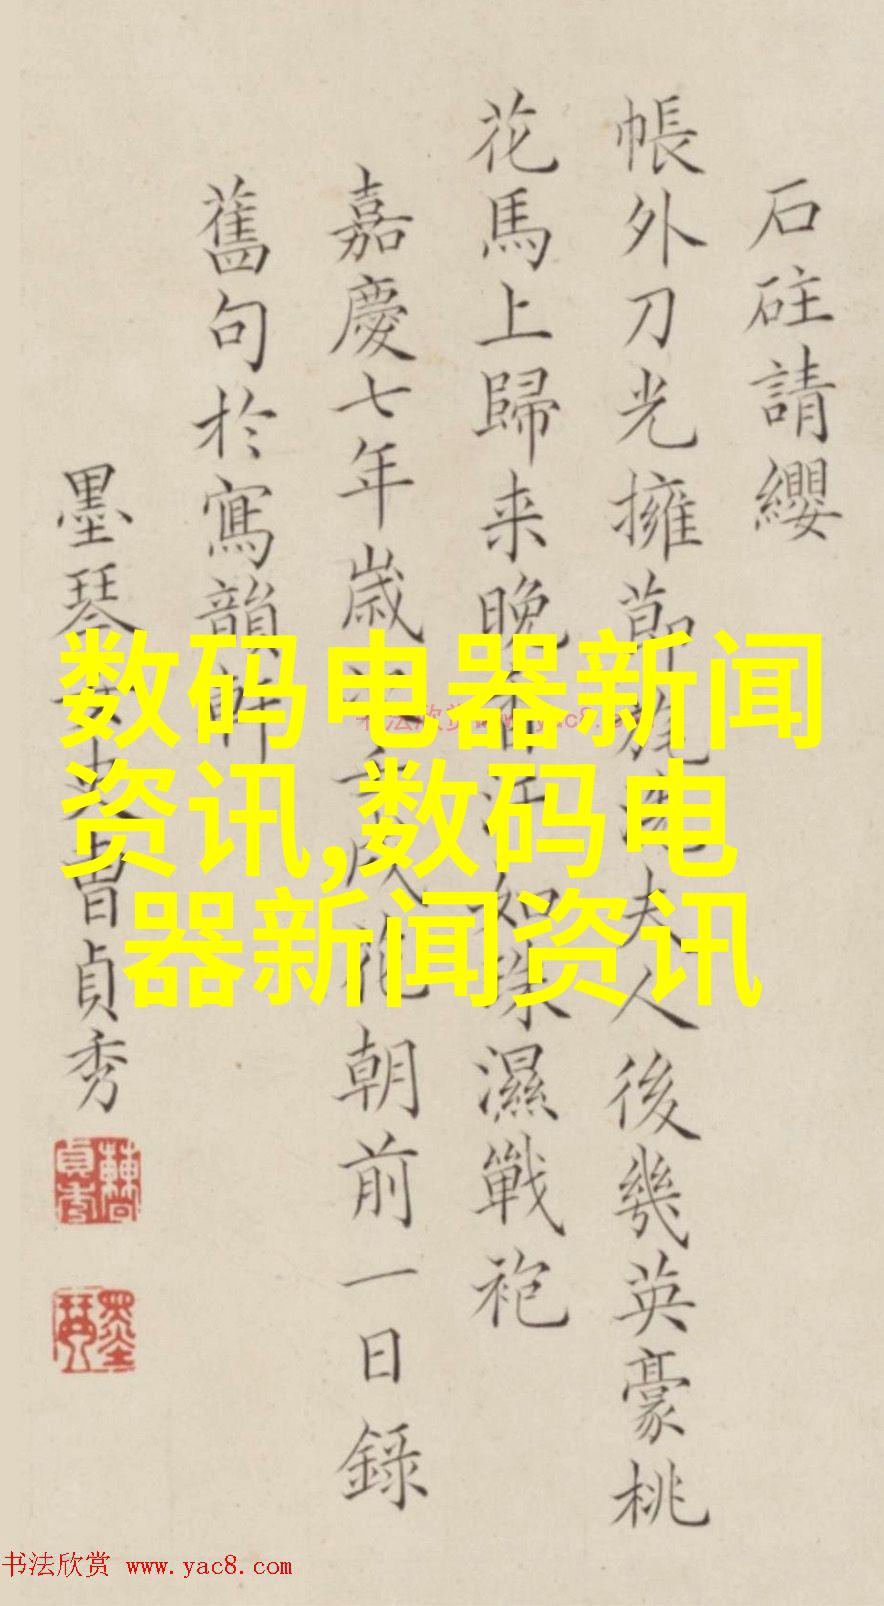 石砫請纓
帳外刀光擁節旄夫人後幾英豪桃
花馬上歸来晚如珠濕戰袍
嘉慶七年歲花朝前一日錄
舊句於寫韻軒
墨琴女史曹貞秀
数码电器新闻
资讯,数码电
器新闻资讯
书法欣赏 www.yac8.com